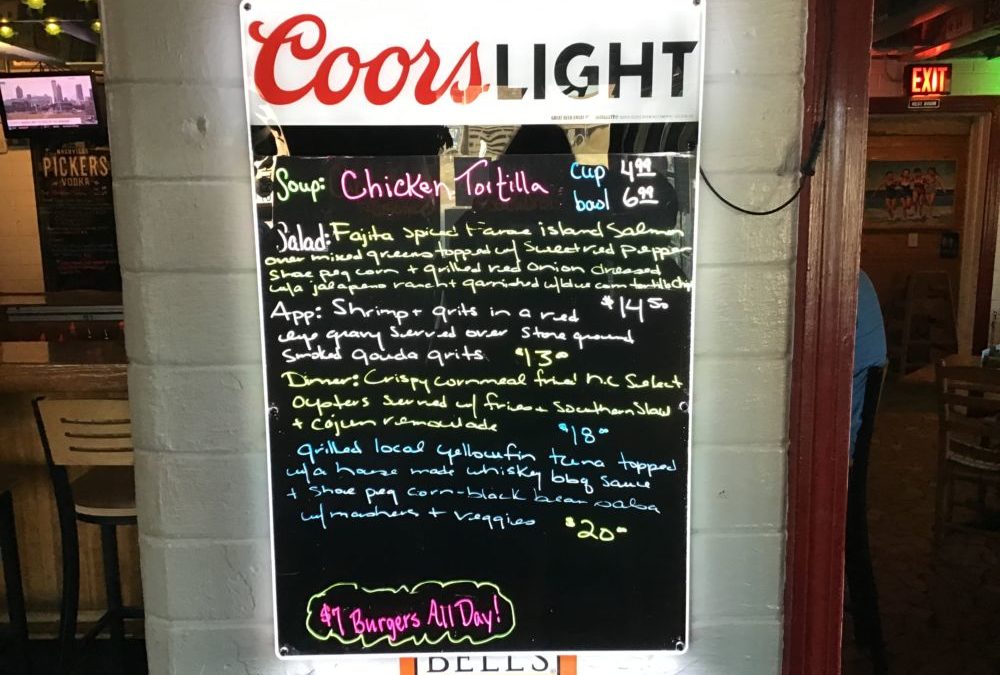 Coors LIGHT
EXIT
NASHVILLE
PICKERS
VODKA
Soup: Chicken Tortilla cup 4.99
bool 6.99
Salad: Fajita spiced Faroe island Salmon
over mixed greens topped w/ sweet red pepper
shoe peg corn + grilled red onion dressed
w/a jalapeno ranch + garnished w/blue corn tortilla chips
$14.50
App: Shrimp + grits in a red
eye gravy served over stone ground
smoked gouda grits $13.00
Dinner: Crispy cornmeal fried N.C. Select
Oysters served w/ fries + Southern Slaw
+ cajun remoulade $18.00
grilled local yellowfin tuna topped
w/a house made whiskey bbq sauce
+ shoe peg corn-black bean salsa
w/mashers + veggies $20.00
$7 Burgers All Day!
BELL'S